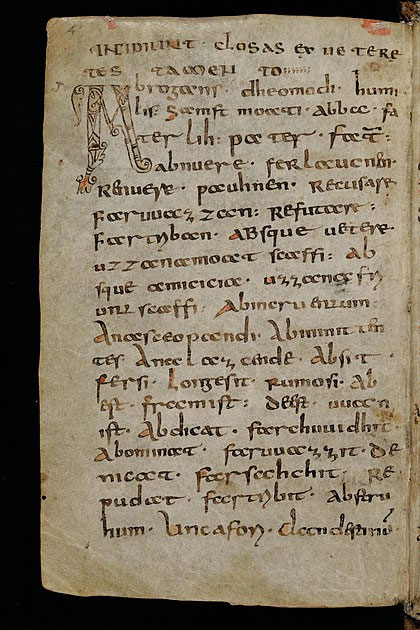 INCIPIUNT · closas ex uetere
tes tamen to
Abrogans · dheomodi · humi
lis · samft moati · abba · fa
ter lih · pater · fater
abnuere · ferlaucnen ·
Renuere · pauhnen · Recusare
faruuazzan : Refutare :
fartriban · absque uetere ·
uzzana moat scaffi · ab
que amicicia · uzzana fri
unt scaffi · abincruentum ·
anasceopandi · abminuen
tes · ane laezende · absit ·
fersi · longe sit · rumo si · ab
est · fram ist : deest · uuan
ist · abdicat · farchuuidhit ·
abominat · faruuazzit · de
nicat · farsahchit · re
pudiat · fartribit · absur
dum · uncafori ·